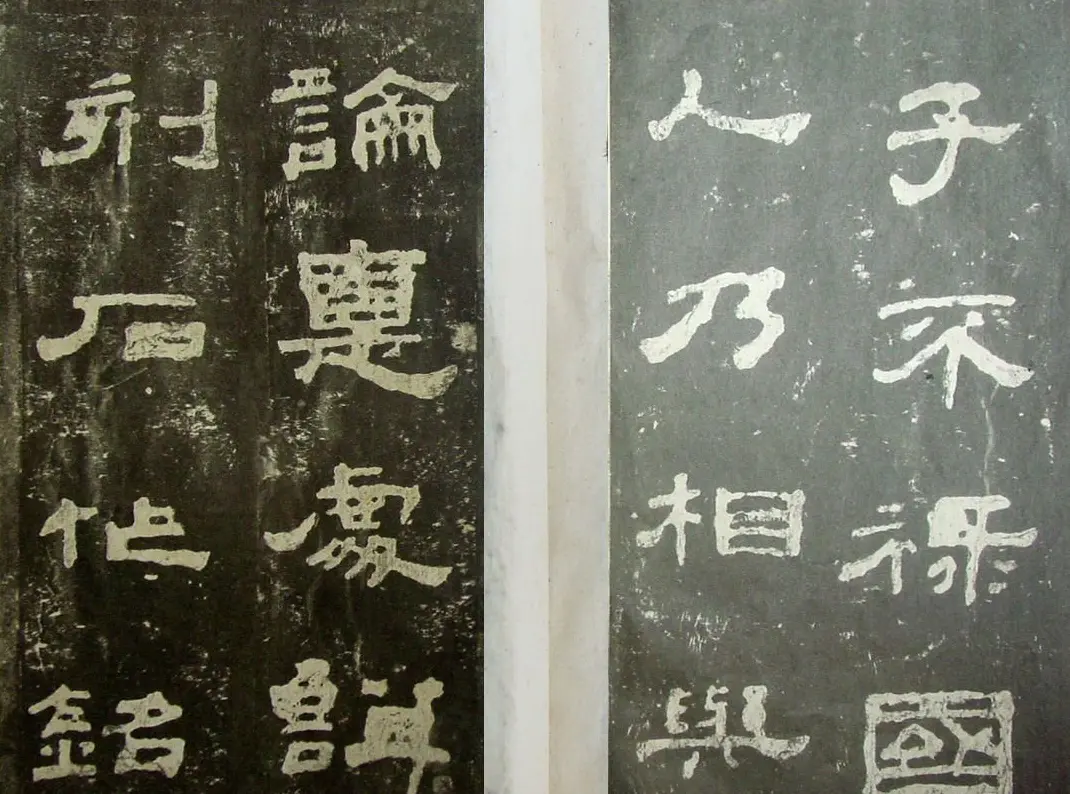 子不祿國
人乃相與
論悳處謚
刻石作銘